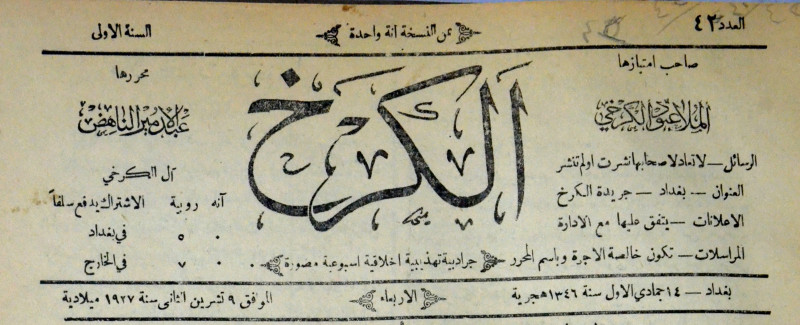 العدد ٤٢
ثمن النسخة آنة واحدة
السنة الاولى
صاحب امتيازها
الملا عبود الكرخي
الكرخ
محررها
عبد الامير الناهض
آل الكرخي
الرسائل – لا تعاد لاصحابها نشرت او لم تنشر
العنوان – بغداد – جريدة الكرخ
الاعلانات – يتفق عليها مع الادارة
المراسلات – تكون خالصة الاجرة وباسم المحرر
آنه روبية الاشتراك يدفع سلفاً
٠ ٥ في بغداد
٠ ٧ في الخارج
جرادبية تهذيبية اخلاقية اسبوعية مصورة
بغداد – ١٤ جمادي الاول سنة ١٣٤٦ هجرية
الاربعاء
الموافق ٩ تشرين الثانى سنة ١٩٢٧ ميلادية